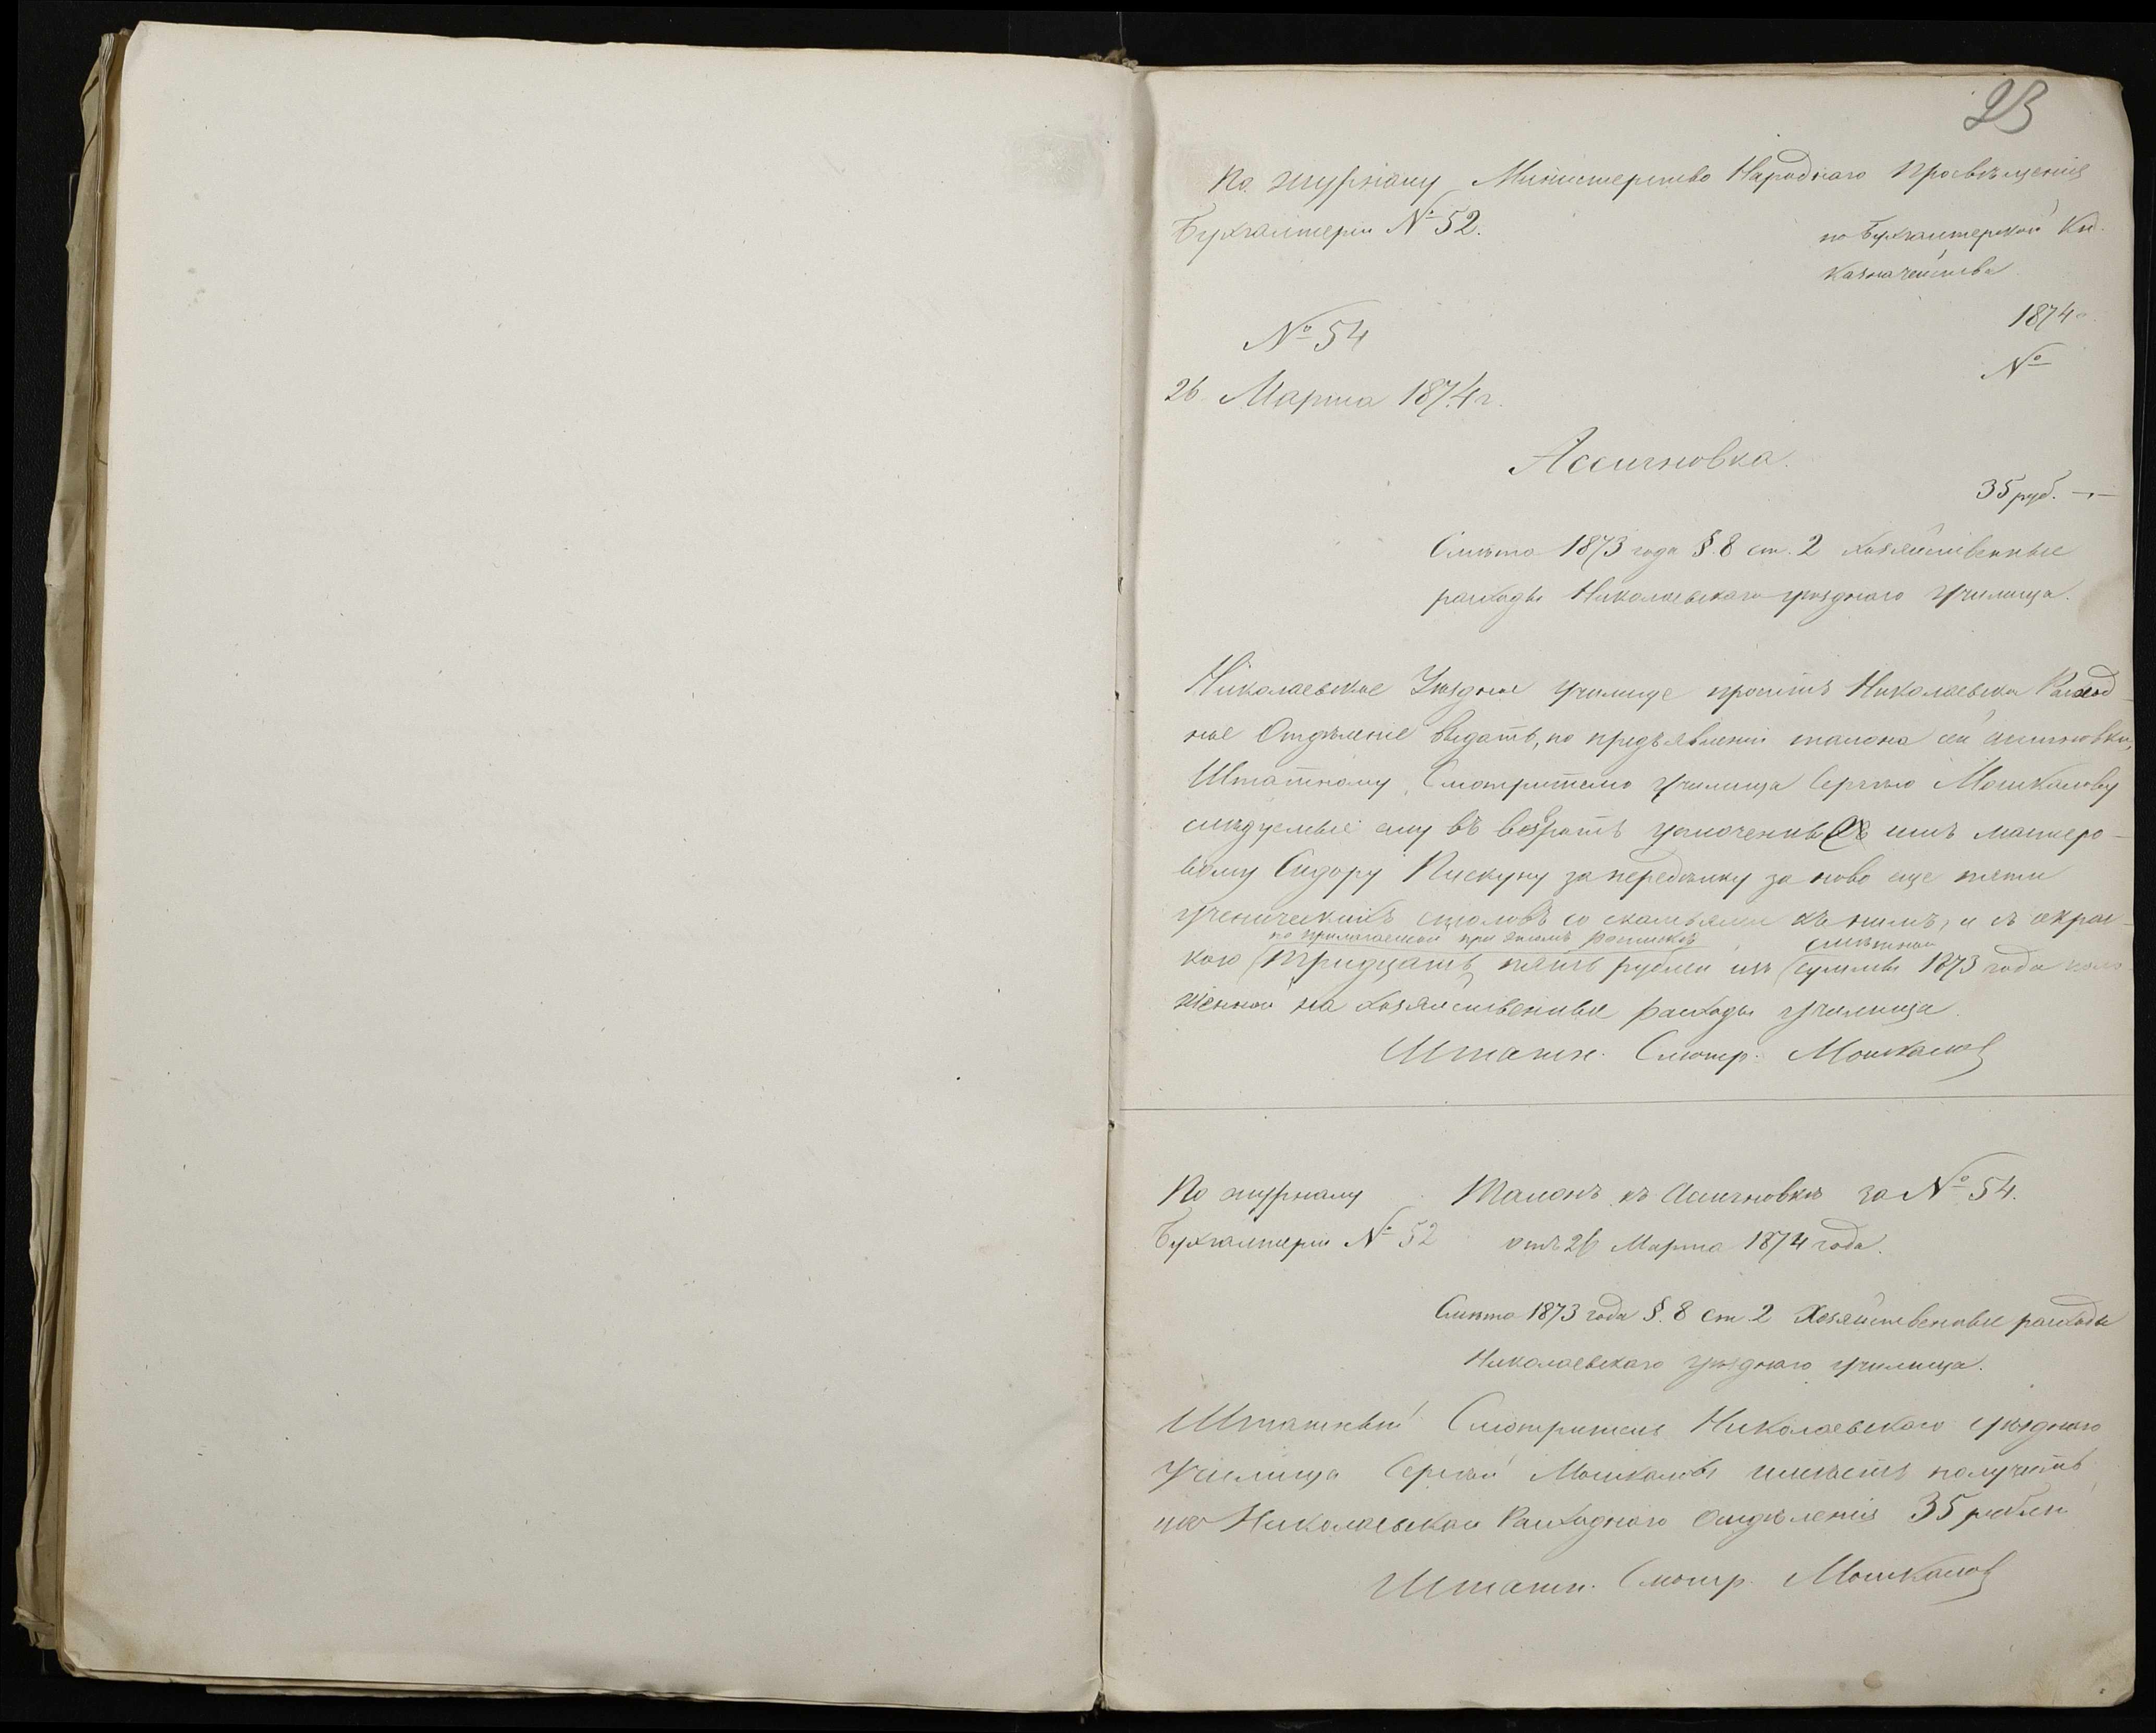 23
По журналу Министерство Народнаго Просвѣщенія
Бухгалтеріи № 52.
по Бухгалтерской Кн.
Казначейства
1874 г.
№
№ 54
26 Марта 1874 г.
Ассигновка.
35 руб. —
Смѣта 1873 года §. 8 ст. 2 Хозяйственные
расходы Николаевскаго уѣзднаго училища.
Николаевское Уѣздное училище проситъ Николаевское Расход-
ное Отдѣленіе выдать, по предъявленіи талона сей ассигновки,
Штатному Смотрителю училища Сергѣю Мошкалову
слѣдуемые ему въ возратъ уплоченные имъ мастеро-
вому Сидору Пискуну за передѣлку за ново еще пяти
ученическихъ столовъ со скамьями къ нимъ, и съ окрас-
по прилагаемой при семъ роспискѣ смѣтной
кою тридцать пять рублей изъ суммы 1873 года поло-
женной на хозяйственные расходы училища.
Штатн. Смотр. Мошкалов
По журналу Талонъ къ Ассигновкѣ за № 54.
Бухгалтеріи № 52 отъ 26 Марта 1874 года.
Смѣта 1873 года §. 8 ст 2 Хозяйственные расходы
Николаевскаго уѣзднаго училища.
Штатный Смотритель Николаевскаго уѣзднаго
Училища Сергѣй Мошкаловъ имѣетъ получить
изъ Николаевскаго Расходнаго Отдѣленія 35 рублей
Штатн. Смотр. Мошкалов